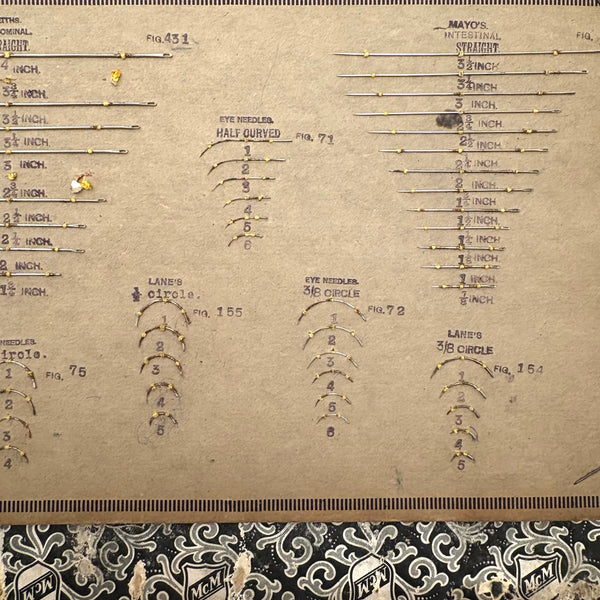 FIG. 431
INCH.
3¾ INCH.
3½ INCH.
3¼ INCH.
3 INCH.
2¾ INCH.
2½ INCH.
2¼ INCH.
2 INCH.
INCH.
EYE NEEDLES.
HALF CURVED
FIG. 71
1
2
3
4
5
6
MAYO'S.
INTESTINAL
STRAIGHT.
FIG.
INCH
INCH
3 INCH
INCH
INCH
INCH
2 INCH
INCH
INCH
INCH
INCH
INCH
INCH
NEEDLES.
ircle.
FIG. 75
1
2
3
4
LANE'S
½ circle.
FIG. 155
1
2
3
4
5
EYE NEEDLES.
3/8 CIRCLE
FIG. 72
1
2
3
4
5
LANE'S
3/8 CIRCLE
FIG. 154
1
2
3
4
5
McM
McM
McM
McM